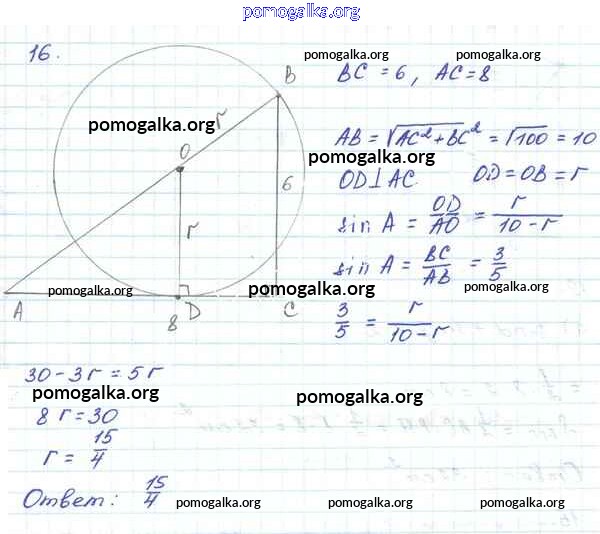 pomogalka.org
16.
pomogalka.org pomogalka.org
BC = 6, AC = 8
B
r
pomogalka.org
AB = √AC²+BC² = √100 = 10
pomogalka.org
O
OD⊥AC OD = OB = r
6
r
sin A = OD/AO = r/(10-r)
pomogalka.org
sin A = BC/AB = 3/5
pomogalka.org pomogalka.org pomogalka.org
A 8 D C
3/5 = r/(10-r)
pomogalka.org
30 - 3r = 5r
pomogalka.org pomogalka.org
8r = 30
r = 15/4
Ответ: 15/4
pomogalka.org pomogalka.org pomogalka.org